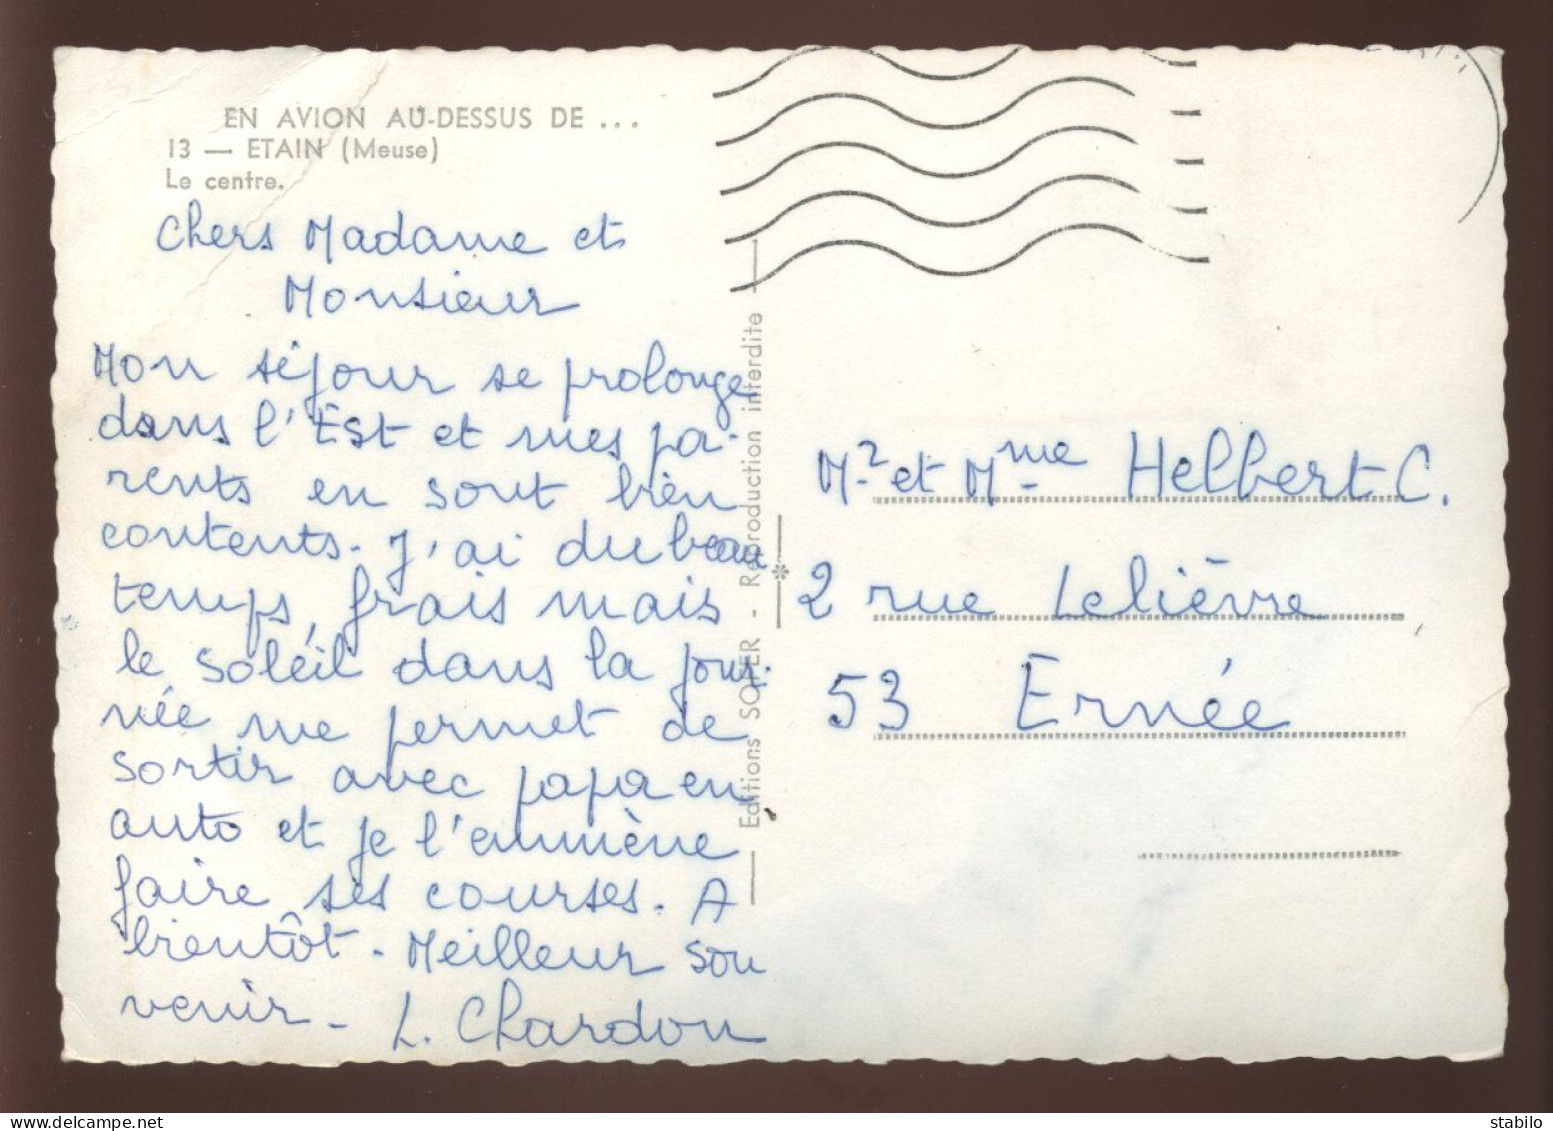 EN AVION AU-DESSUS DE ...
13 — ETAIN (Meuse)
Le centre.
Chers Madame et
Monsieur
Mon séjour se prolonge
dans l'Est et mes pa-
rents en sont bien
contents. J'ai du beau
temps, frais mais
le soleil dans la jour-
née me permet de
sortir avec papa en
auto et je l'emmène
faire ses courses. A
bientôt. Meilleur sou
venir. L. Chardon
Editions SOFER - Reproduction interdite
Mr et Mme Helbert C.
2 rue Lelièvre
53 Ernée
delcampe.net
stabilo